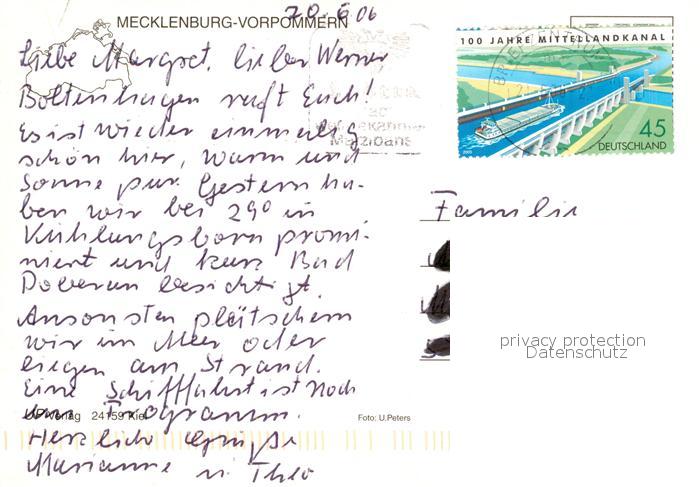 20.6.06
MECKLENBURG-VORPOMMERN
Liebe Margret, lieber Werner
Boltenhagen ruft Euch!
Es ist wieder einmalig
schön hier, warm und
Sonne pur. Gestern ha-
ben wir bei 29° in
Kühlungsborn promi-
niert und kurz Bad
Doberan besichtigt.
Ansonsten plätschern
wir im Meer oder
liegen am Strand.
Eine Schifffahrt ist noch
im Programm.
Herzliche Grüße
Marianne u. Theo
Verlag 24159 Kiel
Foto: U.Peters
100 JAHRE MITTELLANDKANAL
45
DEUTSCHLAND
2005
BRIEFZENTRUM
Familie
privacy protection
Datenschutz